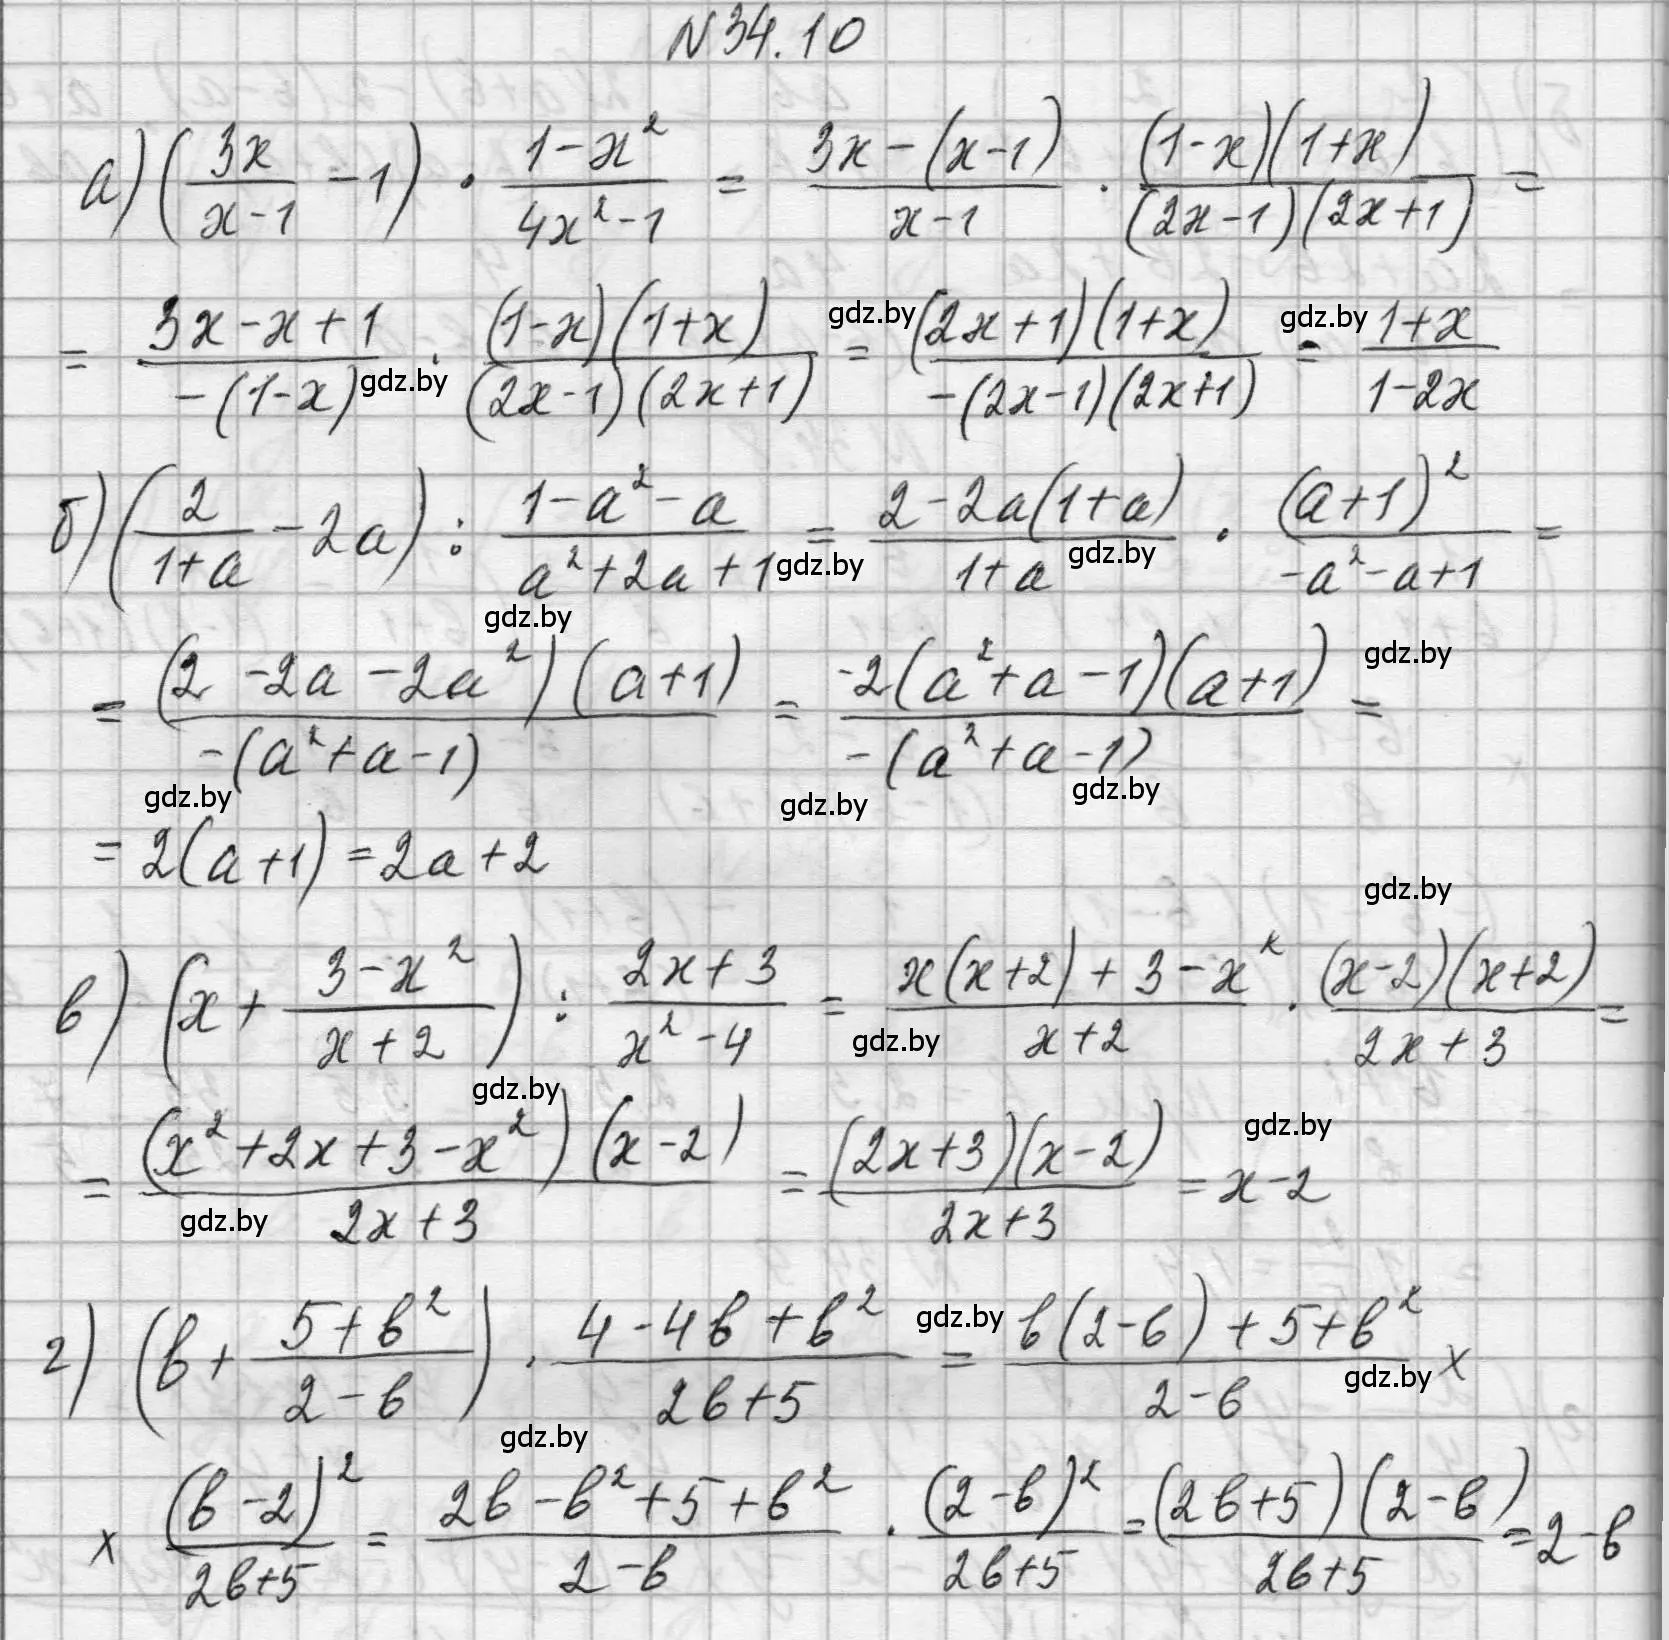 N 34.10
а) (3x/(x-1) - 1) · (1-x²)/(4x²-1) = (3x-(x-1))/(x-1) · ((1-x)(1+x))/((2x-1)(2x+1)) =
= (3x-x+1)/(-(1-x)) · ((1-x)(1+x))/((2x-1)(2x+1)) = ((2x+1)(1+x))/(-(2x-1)(2x+1)) = (1+x)/(1-2x)
gdz.by gdz.by gdz.by
б) (2/(1+a) - 2a) : (1-a²-a)/(a²+2a+1) = (2-2a(1+a))/(1+a) · (a+1)²/(-a²-a+1) =
gdz.by gdz.by gdz.by
= ((2-2a-2a²)(a+1))/(-(a²+a-1)) = (-2(a²+a-1)(a+1))/(-(a²+a-1)) =
gdz.by gdz.by gdz.by gdz.by
= 2(a+1) = 2a+2
gdz.by
в) (x + (3-x²)/(x+2)) : (2x+3)/(x²-4) = (x(x+2)+3-x²)/(x+2) · ((x-2)(x+2))/(2x+3) =
gdz.by gdz.by
= ((x²+2x+3-x²)(x-2))/(2x+3) = ((2x+3)(x-2))/(2x+3) = x-2
gdz.by gdz.by
г) (b + (5+b²)/(2-b)) · (4-4b+b²)/(2b+5) = (b(2-b)+5+b²)/(2-b) ×
gdz.by gdz.by gdz.by
× (b-2)²/(2b+5) = (2b-b²+5+b²)/(2-b) · (2-b)²/(2b+5) = ((2b+5)(2-b))/(2b+5) = 2-b